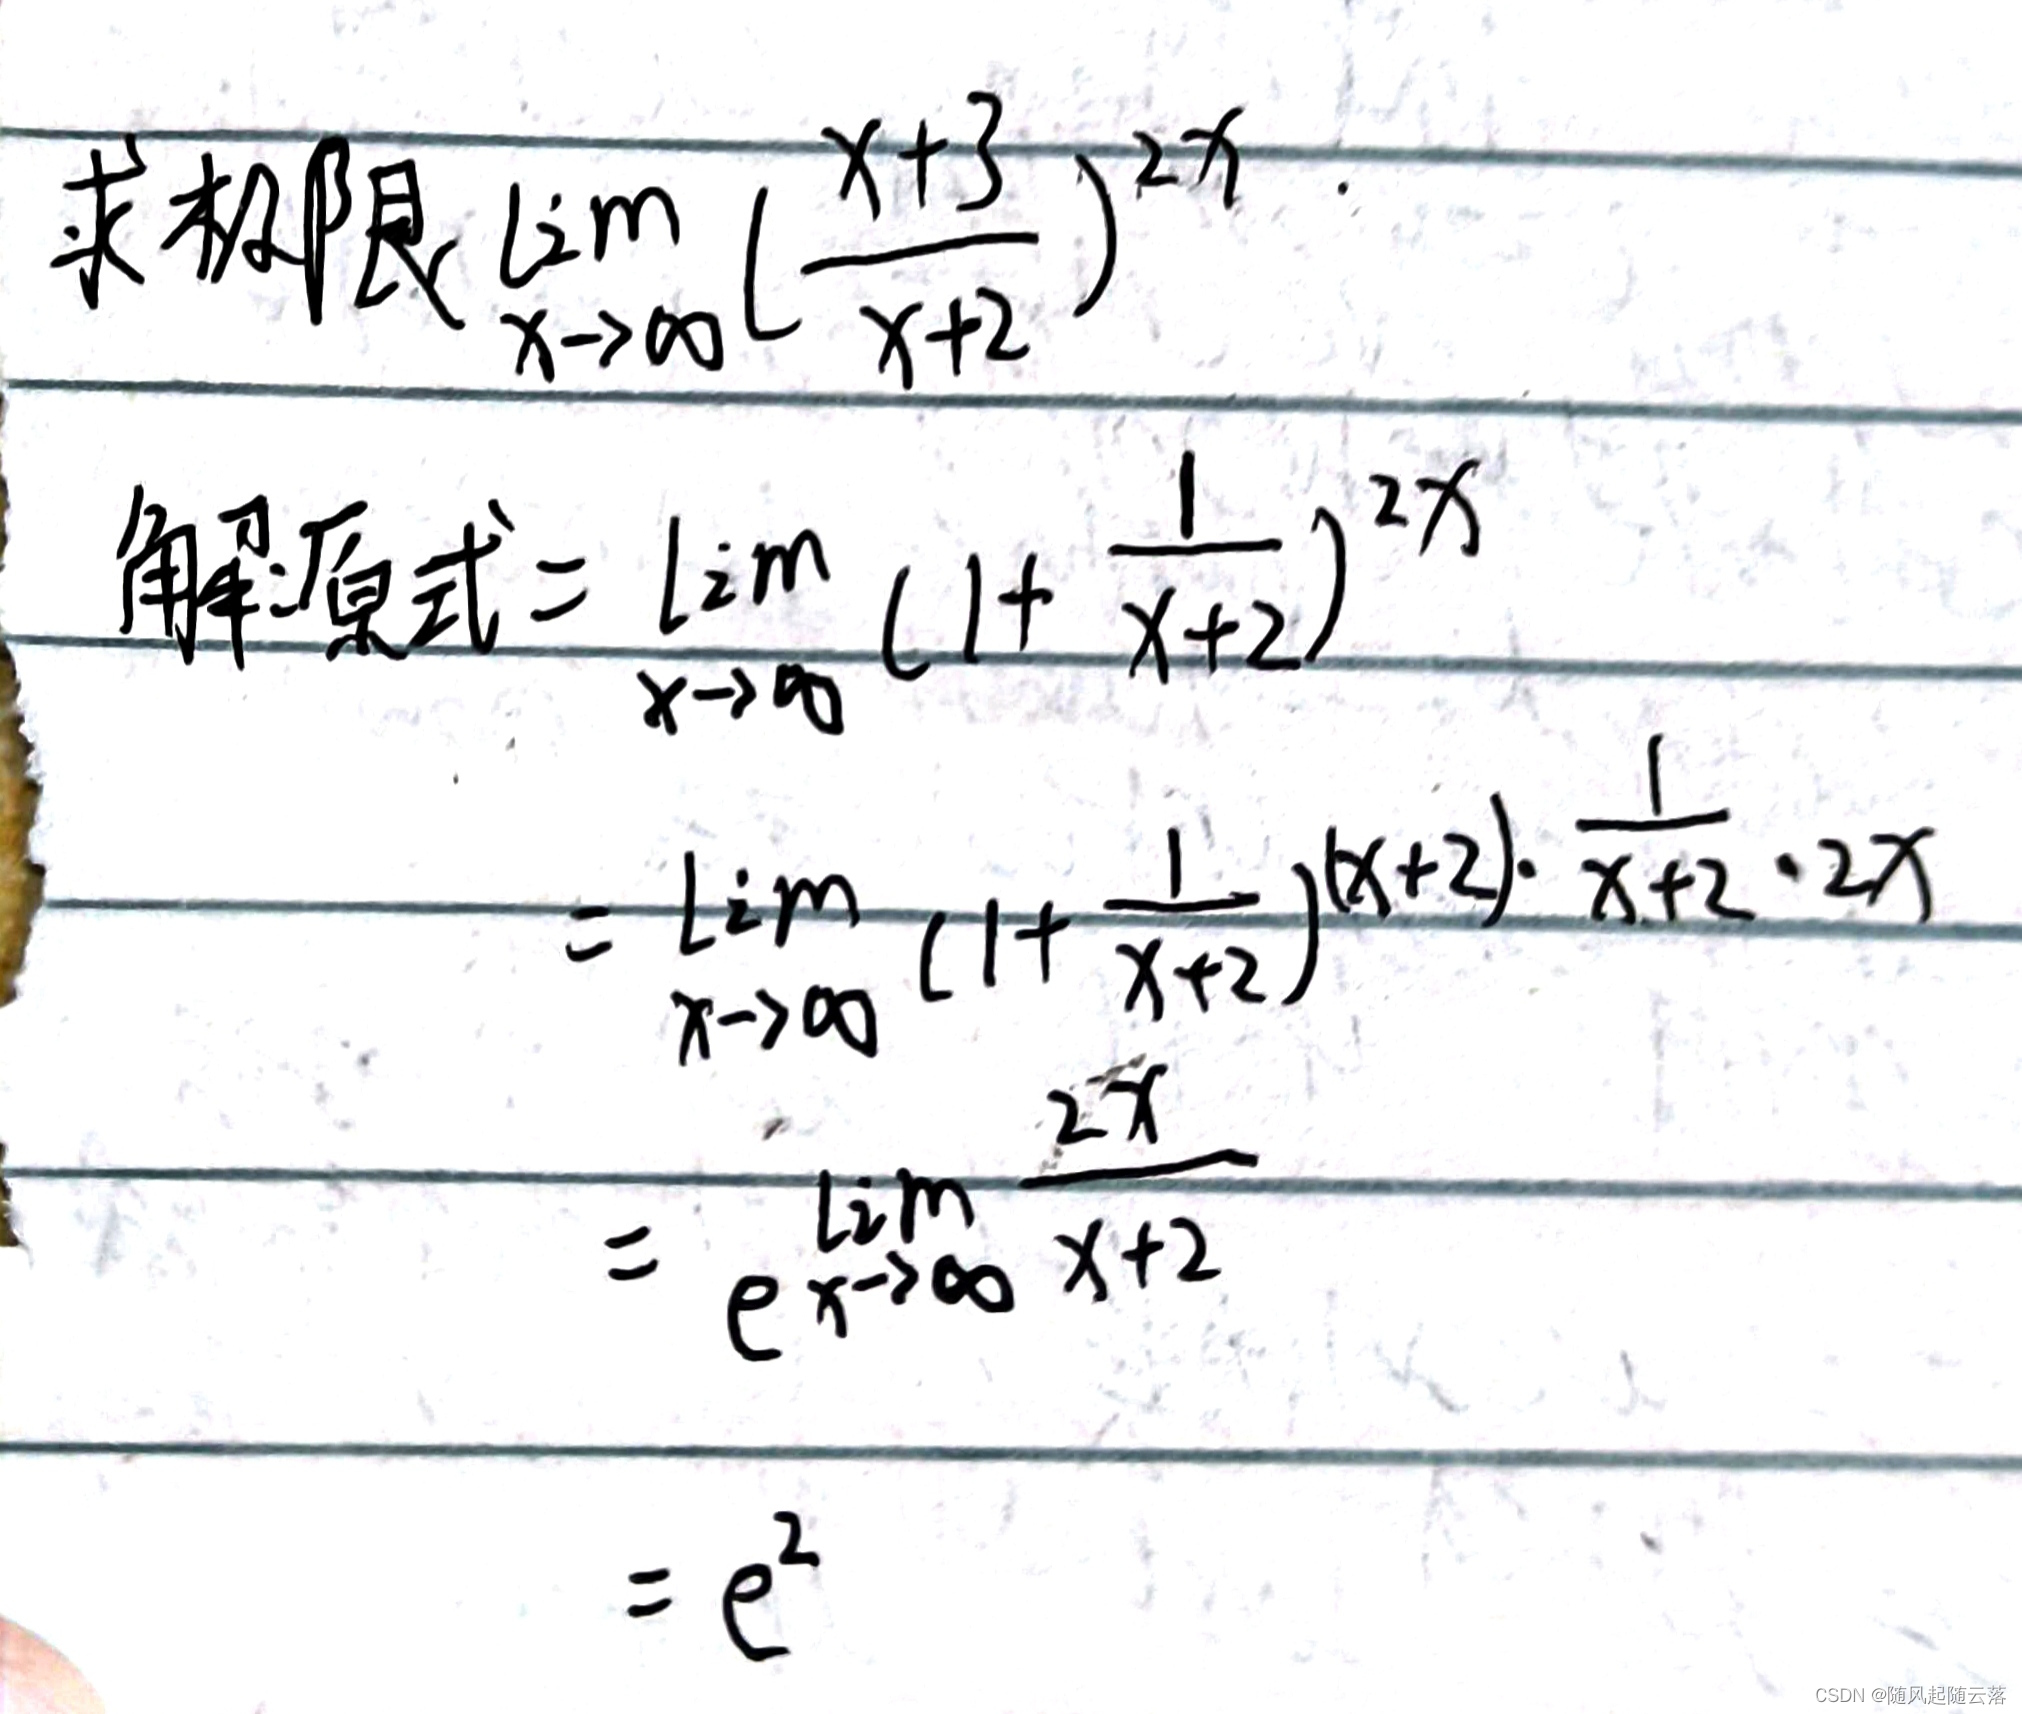 求极限 lim x→∞ (x+3/x+2)^2x.
解:原式= lim x→∞ (1+ 1/x+2)^2x
= lim x→∞ (1+ 1/x+2)^(x+2)·1/x+2·2x
= e^lim x→∞ 2x/x+2
= e^2
CSDN @随风起随云落